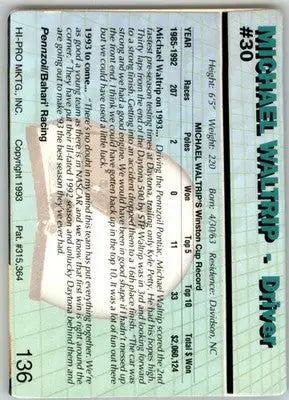 MICHAEL WALTRIP - Driver
#30
Height: 6'5" Weight: 220 Born: 4/30/63 Residence: Davidson, NC
MICHAEL WALTRIP'S Winston Cup Record
YEAR Races Poles Won Top 5 Top 10 Total $ Won
1985-1992 207 2 0 11 33 $2,060,124
Michael Waltrip on 1993... Driving the Pennzoil Pontiac, Michael Waltrip scored the "2nd
fastest pre-season testing times at Daytona, trailing only Kyle Petty. He had his hopes high.
Thirty laps from the end of the Daytona 500 by STP, Waltrip was in 3rd and looking forward
to a strong finish. Getting into an accident dropped him to a 16th place finish. "The car was
strong and we had a good engine. We would have been in good shape if I hadn't messed up
the front end. I think we could have gotten back up in the top 10. It was a lot of fun out there
but we could have used a little luck."
1993 to come... "There's no doubt in my mind this team has put everything together. We're
as good a young team as there is in NASCAR and we know that first win is right around the
corner." They have put their ill-fated 1992 season and unlucky Daytona behind them and
are going out to make '93 the best season they've ever had.
Pennzoil/Bahari' Racing
HI-PRO MKTG., INC. Copyright 1993 Pat. #315,364
136